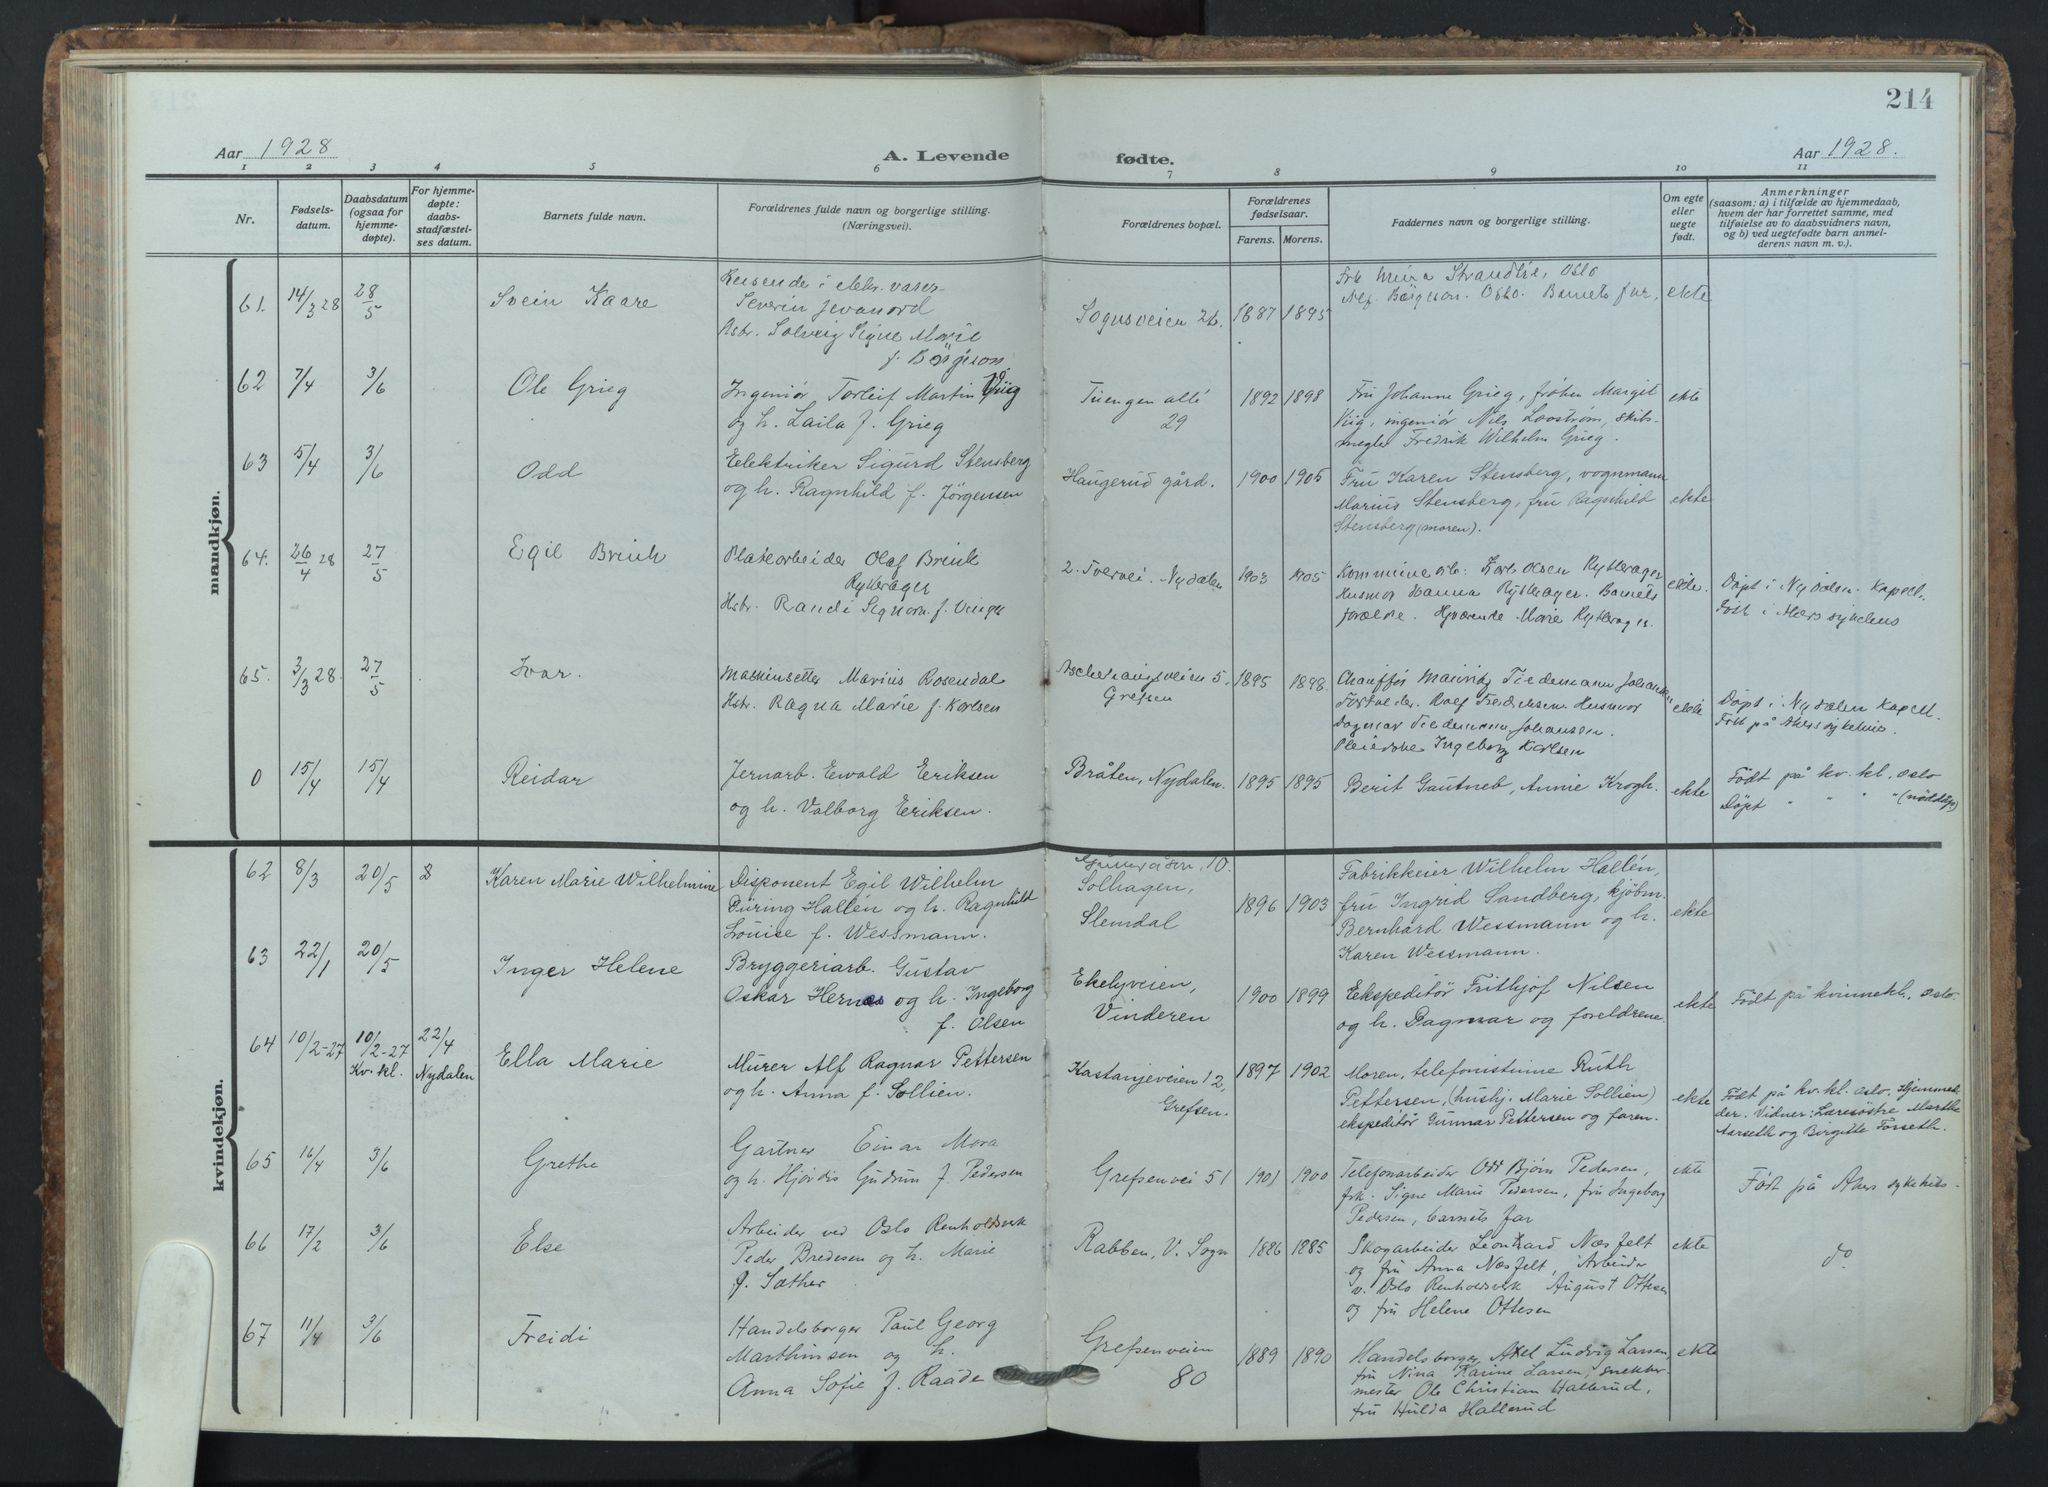 214
Aar 1928
A. Levende
fødte.
Aar 1928.
1 2 3 4 5 6 7 8 9 10 11
Nr.
Fødsels-
datum.
Daabsdatum
(ogsaa for
hjemme-
døpte).
For hjemme-
døpte:
daabs-
stadfæstel-
ses datum.
Barnets fulde navn.
Forældrenes fulde navn og borgerlige stilling.
(Næringsvei).
Forældrenes bopæl.
Forældrenes
fødselsaar.
Farens. Morens.
Faddernes navn og borgerlige stilling.
Om egte
eller
uegte
født.
Anmerkninger
(saasom: a) i tilfælde av hjemmedaab,
hvem der har forrettet samme, med
tilføielse av to daabsvidners navn,
og b) ved uegtefødte barn anmel-
derens navn m. v.).
mandkjøn.
61. 14/3 28 28/5
Svein Kaare
Reisende i elektr. varer
Severin Jevanord
Hstr. Solveig Signe Marie
f. Børgeson
Sognsveien 26.
1887 1895
Frk Strandlie, Oslo
Alf Børgeson. Oslo. Barnets far,
ekte
62 7/4 3/6
Ole Grieg
Ingeniør Torleif Martin Viig
og h. Laila f. Grieg
Tuengen allé
29
1892 1898
Fru Johanne Grieg, frøken Margit
Viig, ingeniør Nils Loostrøm, skibs-
megler Fredrik Wilhelm Grieg.
ekte
63 5/4 3/6
Odd
Elektriker Sigurd Stensberg
og h. Ragnhild f. Jörgensen
Haugerud gård.
1900 1905
Fru Karen Stensberg, vognmann
Marius Stensberg, fru Ragnhild
Stensberg (moren).
ekte
64. 26/4 28 27/5
Egil Breich
Platearbeider Olaf
Rytterager
Hstr. Randi f.
2. Tvervei. Nydalen
1903 1905
Karl Olsen Rytterager
Husmor Hanna Rytterager. Barnets
forældre. Marie Rytterager.
ekte.
Døpt i Nydalen Kapell.
Født i Akers sykehus
65. 3/3 28. 27/5
Ivar.
Maskinsetter Marius Rosendal
Hstr. Ragna Marie f. Karlsen
Aschehaugsveien 5.
Grefsen
1895 1898.
Chauffør Tiedemann Johansen
Rolf Fredriksen. Husmor
Dagmar Tiedemann Johansen.
Ingeborg Karlsen
ekte
Døpt i Nydalen Kapell.
Født på Akers sykehus.
0 15/4 15/4
Reidar
Jernarb. Ewald Eriksen
og h. Valborg Eriksen.
Bråten, Nydalen.
1895 1895
Berit Gautneb, Annie Krogh.
ekte
Födt på kv. kl. oslo
Döpt " " " " (nöddåp)
kvindekjøn.
62 8/3 20/5
Karen Marie Wilhelmine
Disponent Egil Wilhelm
Düring Hallén og h. Ragnhild
Louise f. Wessmann.
10.
Solhagen,
Slemdal
1896 1903
Fabrikkeier Wilhelm Hallén,
fru Ingrid Sandberg, kjöbm.
Bernhard Wessmann og h.
Karen Wessmann.
ekte
63 22/1 20/5
Inger Helene
Bryggeriarb. Gustav
Oskar Hernæs og h. Ingeborg
f. Olsen
Ekelyveien,
Vinderen
1900 1899
Ekspeditör Frithjof Nilsen
og h. Dagmar og foreldrene.
ekte
Födt på kvinnekl., oslo.
64 10/2-27 10/2-27
Kv. kl.
22/4
Nydalen
Ella Marie
Murer Alf Ragnar Pettersen
og h. Anna f. Sollien.
Kastanjeveien 12,
Grefsen.
1897 1902
Moren, telefonistinne Ruth
Pettersen, (hushj. Marie Sollien)
ekspeditör Gunnar Pettersen og faren.
ekte
Födt på kv. kl. oslo. Hjemme
der. Vidner: Læresöstre Marthe
Aarseth og Birgitte Forseth.
65 16/4 3/6
Grethe
Gartner Einar Mora
og h. Hjördis Gudrun f. Pedersen
Grefsenvei 51
1901 1900
Telefonarbeider Odd Bjørn Pedersen,
frk. Signe Marie Pedersen, fru Ingeborg
Pedersen, barnets far
ekte
Født på Akers sykehus-
66 17/2 3/6
Else
Arbeider ved Oslo Renholdsverk
Peder Bredesen og h. Marie
f. Sæther
Rabben, V. Sogn
1886 1885
Skogarbeider Leonhard Næsfelt
og fru Anna Næsfelt, Arbeider
v. Oslo Renholdsverk August Ottesen
og fru Helene Ottesen
ekte
do.
67 11/4 3/6
Freidi
Handelsborger Paul Georg
Marthinsen og h.
Anna Sofie f. Raade
Grefsenveien
80
1889 1890
Handelsborger Axel Ludvig Larsen,
fru Nina Karine Larsen, snekker-
mester Ole Christian Hallerud,
fru Hulda Hallerud
ekte